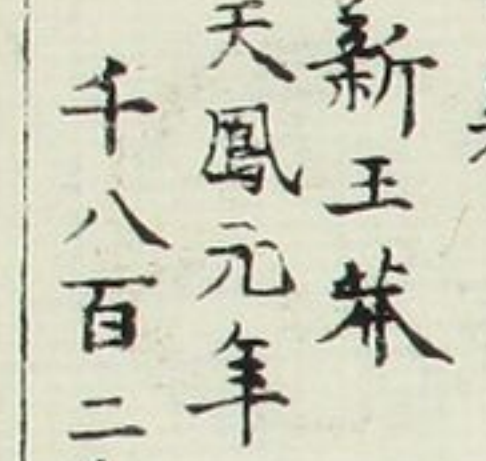 新王莽
天鳳元年
千八百二